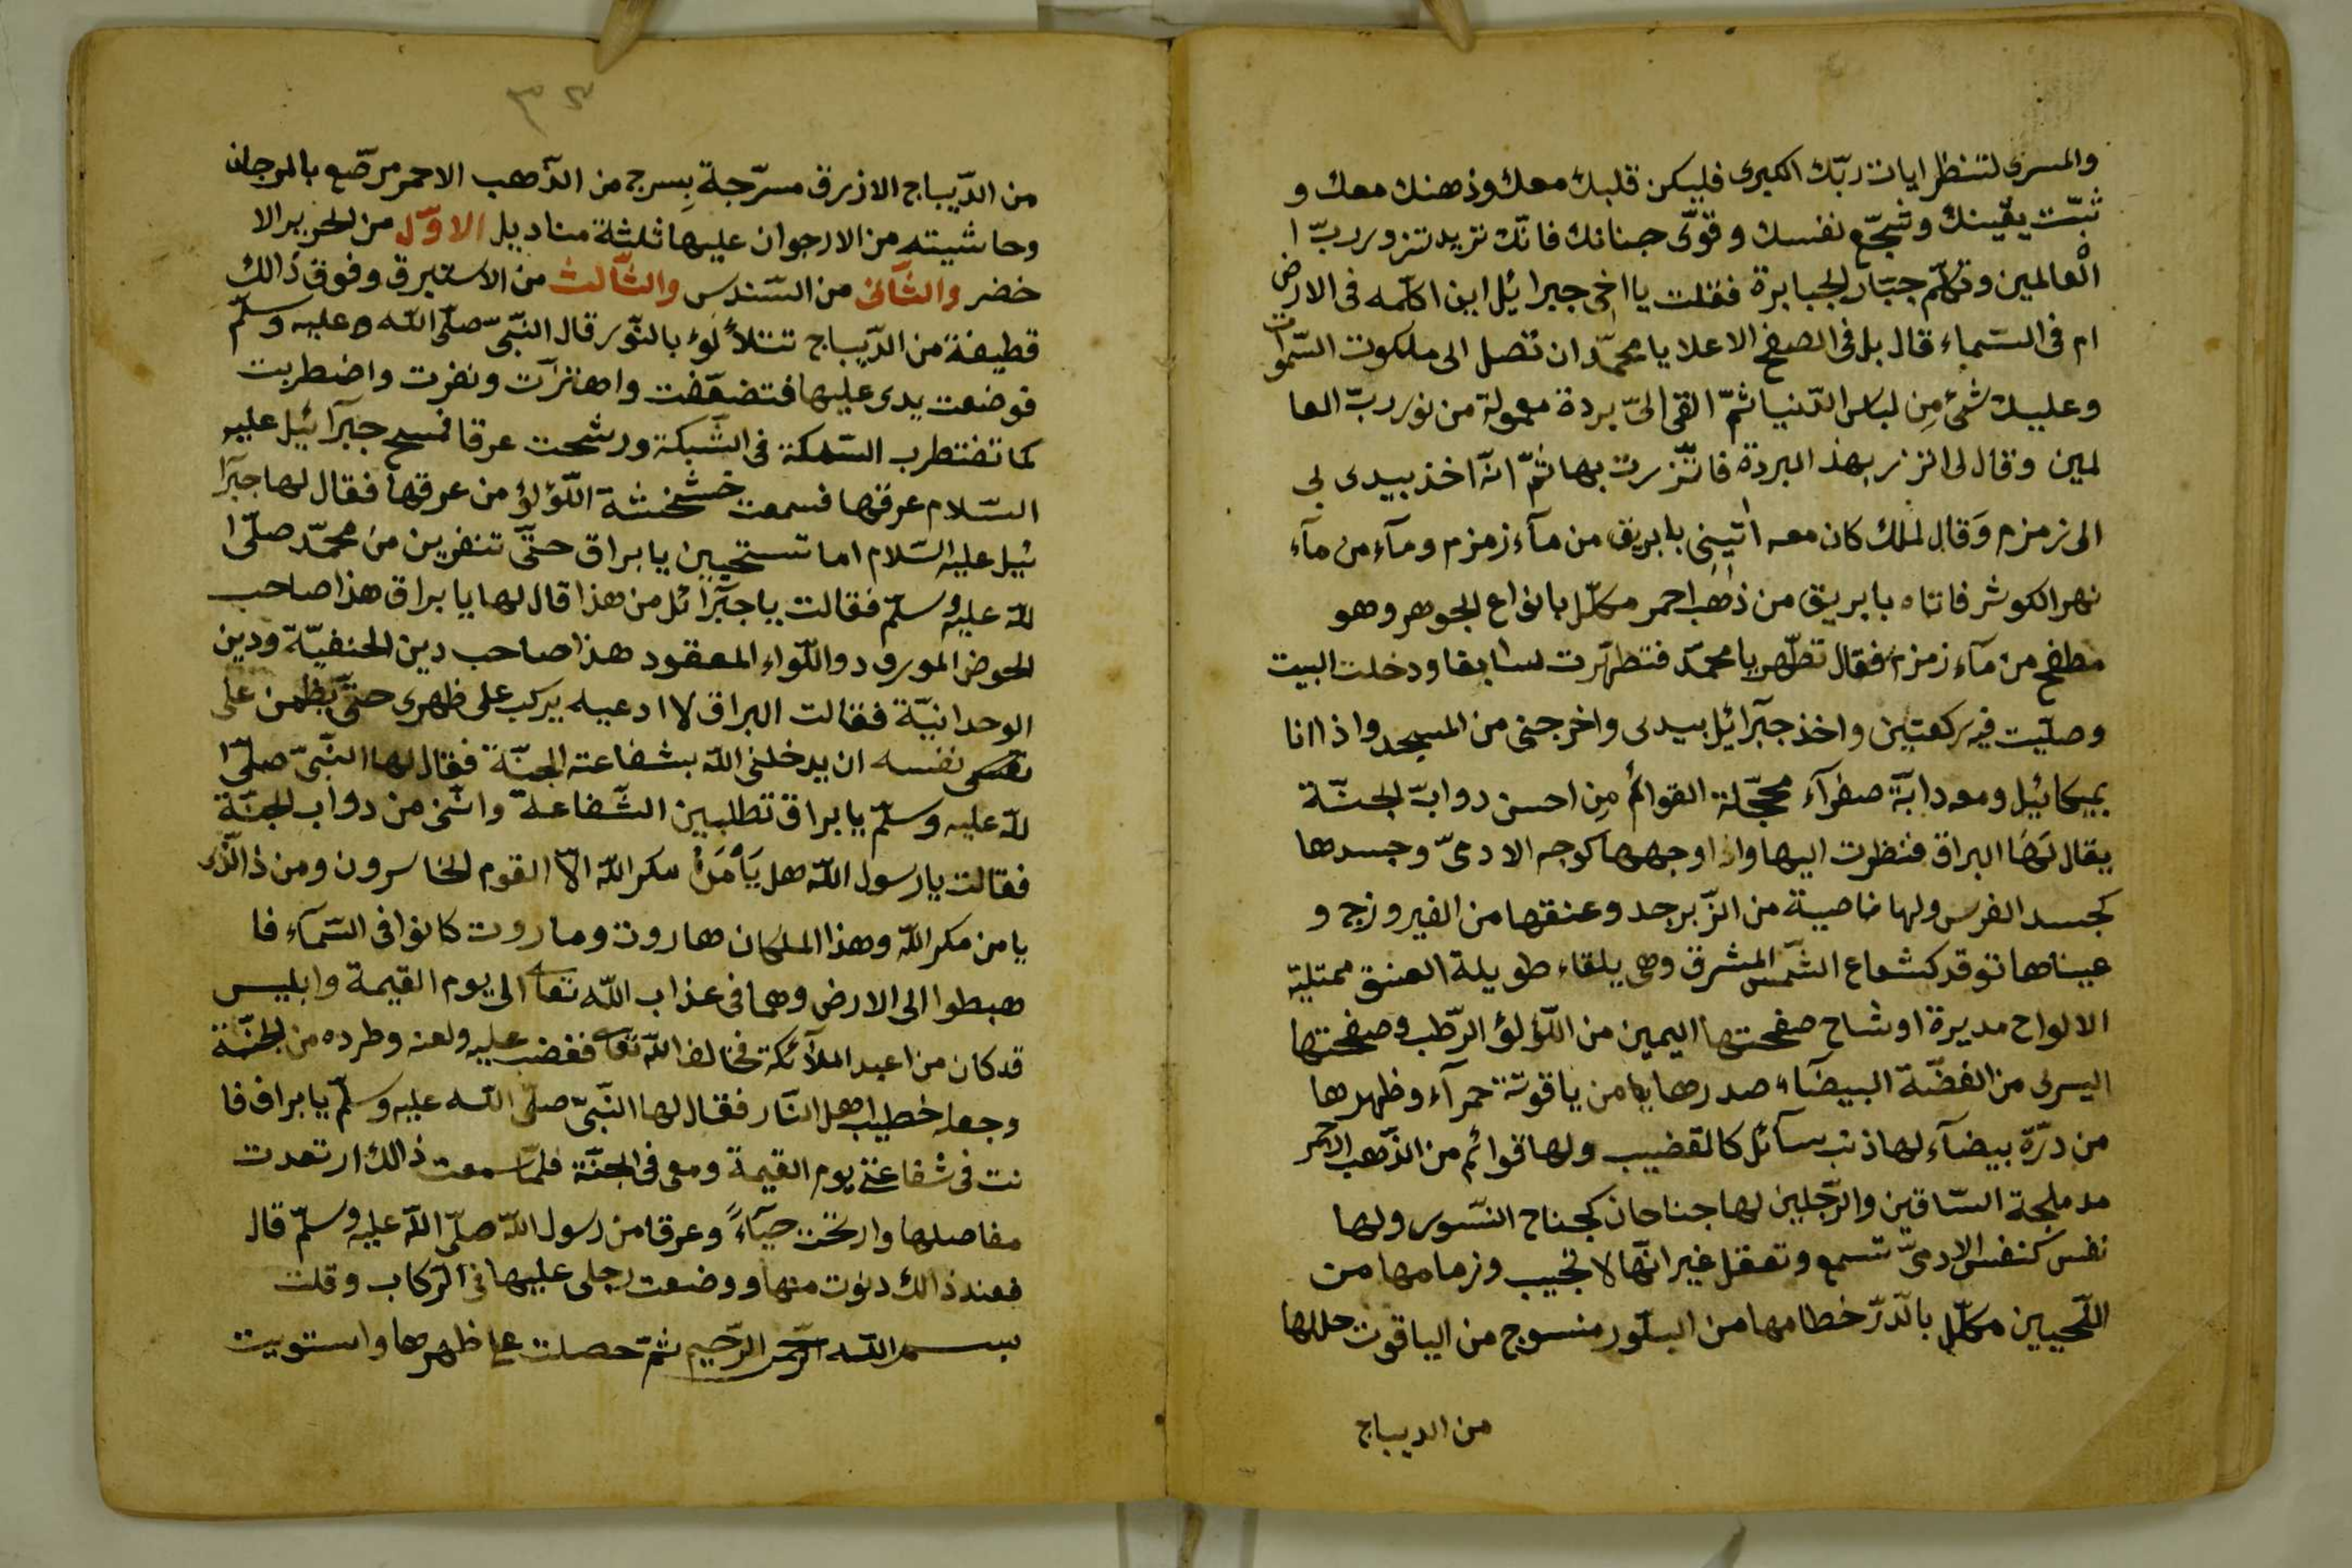 والمسرى لتنظر ايات ربّك الكبرى فليكن قلبك معك وذهنك معك و
ثبّت يقينك وشجّع نفسك وقوّى جنانك فانّك تريد تزور ربّ ا
لْعالمين وتكلّم جبّار الجبابرة فقلت يا اخى جبرائيل اين اكلّمه فى الارض
ام فى السّماء قال بل فى الصفح الاعلا يا محمّد ان تصل الى ملكوت السّموات
وعليك شئ مِن لباس الدّنيا ثمّ القى الىّ بردة معمولة من نور ربّ العا
لمين وقال لى اتزر بهذ البردة فاتّزرت بها ثمّ انّه اخذ بيدى بى
الى زمزم وَقال لملك كان معه اتينى بابريق من مآء زمزم ومآء من مآء
نهر الكوثر فاتاه بابريق من ذهب احمر مكلّل بانواع الجوهر وهو
مطفح من مآء زمزم فقال تطّهر يا محمّد فتطهّرت سابقا ودخلت البيت
وصلّيت فيه ركعتين واخذ جبرآئيل بيدى واخرجنى من المسجد واذا انا
بميكائيل ومعه دابّة صفرآء محجّلة القوائم مِن احسن دوابّ الجنّة
يقال لَهَا البراق فنظرت اليها واذا وجهها كوجه الادمىّ وجسدها
كجسد الفرس ولها ناصية من الزّبرجد وعنقها من الفيروزج و
عيناها توقد كشعاع الشّمس المشرق وهى بلقاء طويلة العنق ممتلية
الالواح مديرة اوشاح صفحتها اليمين من اللّؤلؤ الرّطب وصفحتها
اليسرى من الفضّة البيضآء صدرها من ياقوتة حمرآء وظهرها
من درّة بيضآء لها ذنب سآئل كالقضيب ولها قوائم من الذّهب الاحمر
مدملجة السّاقين والرّجلين لها جناحان كجناح النّسور ولها
نفس كنفس الادمىّ تسمع وتعقل غير انّها لا تجيب وزمامها من
اللّحيين مكلّل بالدّرّ خطامها من البلّور منسوج من الياقوت حللها
من الديباج
٣٢
من الدّيباج الازرق مسرّجة بِسرج من الذّهب الاحمر مرصّع بالمرجان
وحاشيته من الارجوان عليها ثلثة مناديل الاوّل من الحرير الا
خضر والثّانى من السّندس والثّالث من الاستبرق وفوق ذالك
قطيفة من الدّيباج تتلأ لؤ بالنّور قال النّبىّ صلّى اللّه وعليه وسلّم
فوضعت يدى عليها فتضعّضت واهتزآت ونفرت واضطربت
كما تضطرب السّمكة فى الشّبكة ورشحت عرقا فمسح جبرآئيل عليه
السّلام عرقها فسمعت خشخشة اللّؤلؤ من عرقها فقال لها جبرآ
ئيل عليه السّلام اما تستحيين يا براق حتّى تنفرين من محمّد صلّى ا
للّه عليه وسلّم فقالت يا جبرآئل من هذا قال لها يا براق هذا صاحب
الحوض المورود واللّواء المعقود هذا صاحب دين الحنفيّة ودين
الوحدانيّة فقالت البراق لا ادعيه يركب على ظهرى حتّى يظمن على
نفسه ان يدخلنى اللّه بشفاعته الجنّة فقال لها النّبىّ صلّى ا
للّه عليه وسلّم يا براق تطلبين الشّفاعة وانتى من دواب الجنّة
فقالت يا رسول اللّه هل يَأمَنُ مكر اللّه الاّ القوم الخاسرون ومن ذالذّى
يامن مكر اللّه وهذا الملكان هاروت وماروت كانوا فى السّمآء فا
هبطوا الى الارض وهما فى عذاب اللّه تعا الى يوم القيمة وابليس
قد كان من اعبد الملآئكة فخالف اللّه تعا فغضب عليه ولعنه وطرده من الجنّة
وجعله خطيب اهل النّار فقال لها النّبىّ صلّى اللّه عليه وسلّم يا براق فا
نت فى شفاعتى يوم القيمة ومعى فى الجنّة فلمّا سمعت ذالك ارتعدت
مفاصلها وارتخت حيآءً وعرقا من رسول اللّه صلّى اللّه عليه وسلّم قال
فعند ذالك دنوت منها ووضعت رجلى عليها فى الرّكاب وقلت
بسم اللّه الرّحمن الرّحيم ثمّ حصلت على ظهرها واستويت